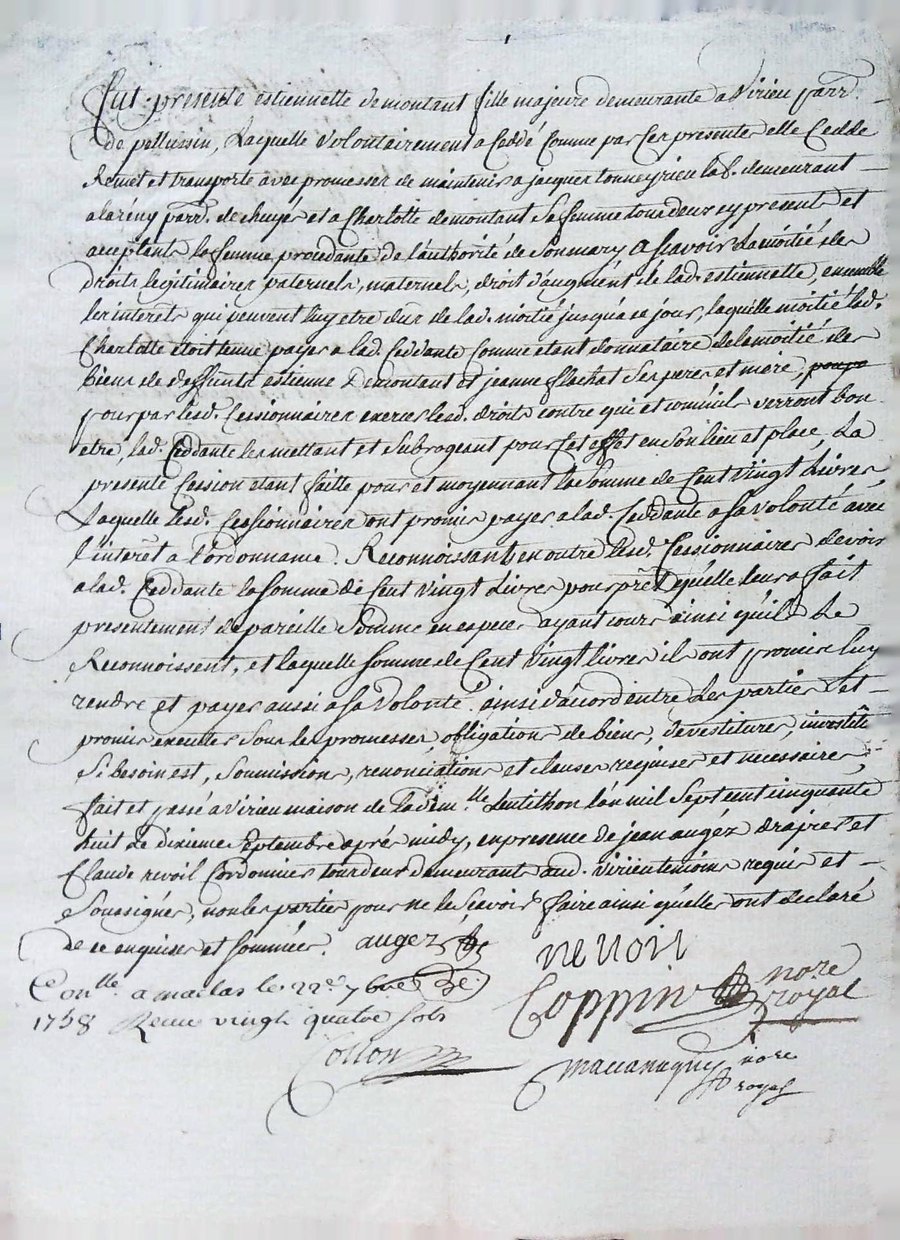 Fut presente estiennette demontant fille majeure demeurante a Virieu parr.
de pellussin, Laquelle Volontairement a Ceddé Comme par Ces presentes elle Cedde
Remet et transporte avec promesses de maintenir a jacques tonneyrieu lab. demeurant
alarény parr. de chuyés et a Charlotte demontant Sa femme tous deux cy presents et
acceptants la femme procedante de l'authorité de Son mary, A Scavoir La moitié des
droits legitimaires paternels, maternels, droit d'augment de lad. estiennette, ensemble
les interets qui peuvent luy etre dus de lad. moitié jusqu'a ce jour, laquelle moitié lad.
Charlotte étoit tenue payer a lad. Ceddante Comme etant donnataire de la moitié des
biens de deffunts estienne Demontant et jeanne flachat Ses pere et mere,
pour par lesd. Cessionnaires exercer lesd. droits contre qui et comme ils verront bon
etre, lad. Ceddante les mettant et Subrogeant pour Cet effet en Son lieu et place, La
presente Cession etant faitte pour et moyennant la Somme de Cent Vingt Livres
Laquelle lesd. Cessionnaires ont promis payer a lad. Ceddante a sa volonté avec
l'interet a l'ordonnance. Reconnoissants en outre lesd. Cessionnaires devoir
a lad. Ceddante la Somme de Cent Vingt Livres pour prêt qu'elle leur a fait
presentement de pareille Somme en especes ayant cours ainsi qu'ils Le
Reconnoissent, et laquelle Somme de Cent Vingt livres ils ont promis luy
rendre et payer aussi a Sa Volonté. ainsi d'accord entre Les parties et
promis executer Sous les promesses, obligations de biens, devestitures, investit.
Si besoin est, Soumissions, renonciations et clauses requises et necessaires,
fait et passé a Virieu maison de la dem.lle dentithon l'an mil Sept cent cinquante
huit de dixieme Septembre aprés midy, en presence de jean augéz drapier et
Claude revoil Cordonnier tous deux demeurants aud. Virieu temoins requis et
Soussignés, non les parties pour ne le Scavoir faire ainsi qu'elles ont declaré
de ce enquises et Sommées. augez
revoil
Con.lle a maclas le 22e 7bre
1758 Receu vingt quatre sols
Coppin nore royal
nore royal